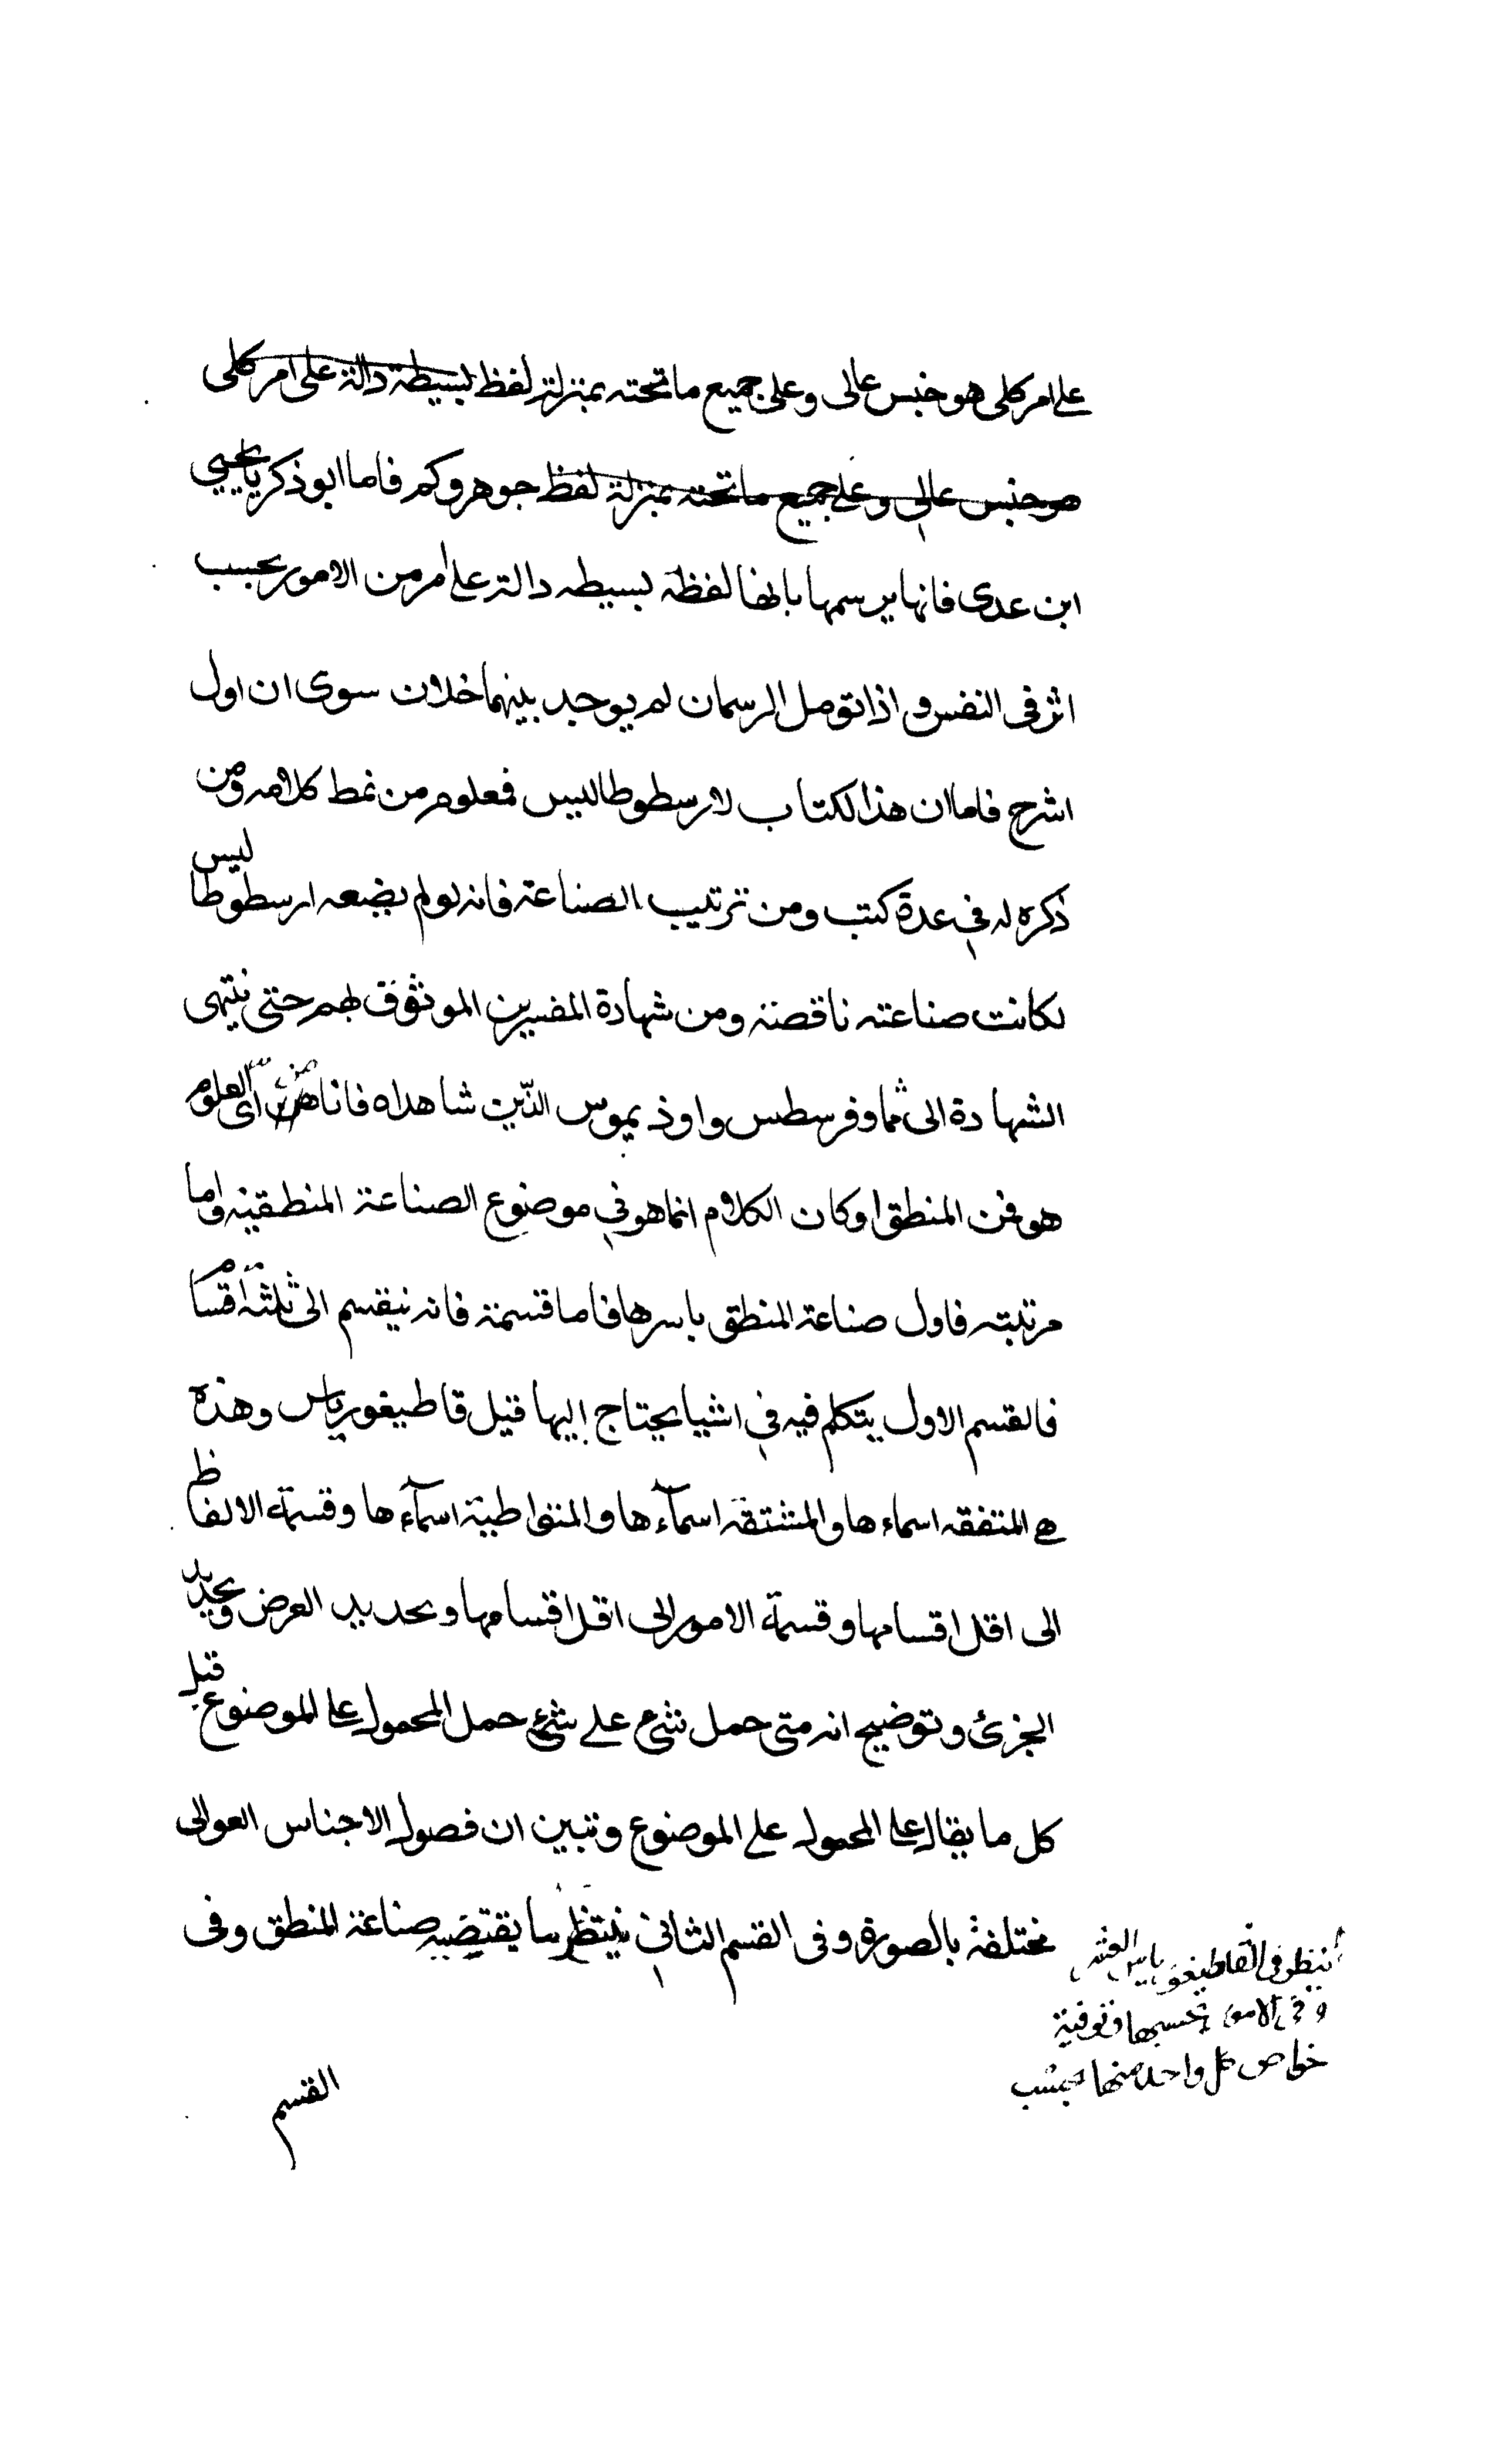 على امر كلى هو جنس عالى وعلى جميع ما تحته بمنزلة لفظ بسيطة دالة على امر كلى
هو جنس عالى وعلى جميع ما تحته بمنزلة لفظ جوهر وكم فاما ابو ذكريا يحيى
ابن عدى فانها يرسمها بانها لفظة بسيطه دالة على امر من الامور بحسب
اثر فى النفس و اذا تومل الرسمان لم يوجد بينهما خلاف سوى ان اول
اشرح فاما ان هذا الكتاب لارسطوطاليس فمعلوم من نمط كلامه ومن
ذكره له فى عدة كتب ومن ترتيب الصناعة فانه لو لم يضعه ارسطوطاليس
لكانت صناعته ناقصة ومن شهادة المفسرين الموثوق بهم حتى ينتهى
الشهادة الى ثاوفرسطس واوذيموس الذين شاهداه فاما من اى العلوم
هو فمن المنطق اوكان الكلام انما هو فى موضوع الصناعة المنطقيه واما
مرتبته فاول صناعة المنطق باسرها فاما قسمة فانه ينقسم الى ثلثة اقسام
فالقسم الاول يتكلم فيه فى اشيا يحتاج إليها قبل قاطيغورياس وهذه
هى المتفقه اسماءها والمشتقه اسماءها والمتواطية اسماءها وقسمة الالفاظ
الى اقل اقسامها وقسمة الامور الى اقل اقسامها وتحديد العرض وتحديد
الجزئ وتوضيح انه متى حمل شئ على شئ حمل المحمول على الموضوع قيل
كل ما يقال على المحمول على الموضوع وتبين ان فصول الاجناس العوالى
مختلفة بالصورة وفى القسم الثانى ينتظر ما يقتضيه صناعة المنطق وفى
ينظر فى القاطيغورياس العشر
وفى الامور بحسبها وتوفية
خواص كل واحد منها بحسب
القسم